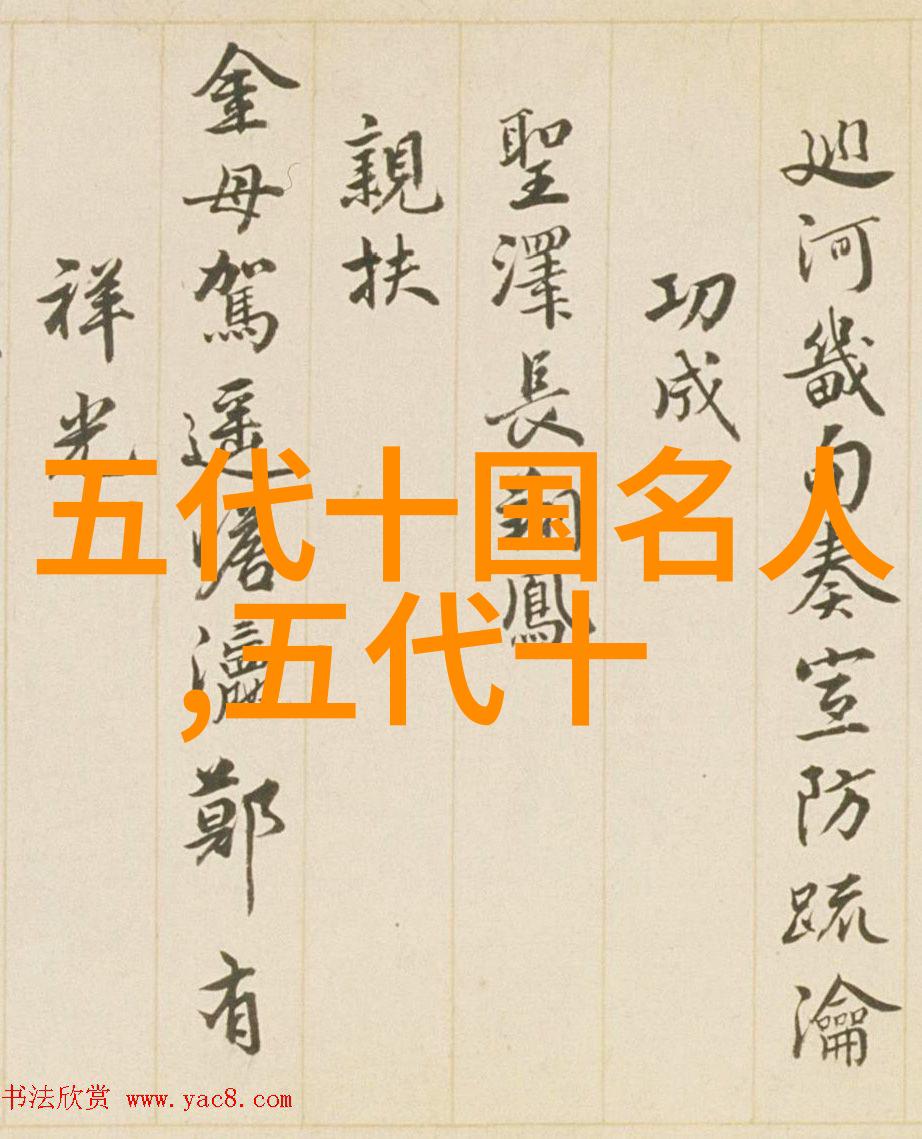 廵河畿向奏宣防疏瀹
功成
聖澤長翔鳳
親扶
金母駕遥
瀛鄭有
祥光
五代十国名人
,五代十
书法欣赏 www.yac8.com